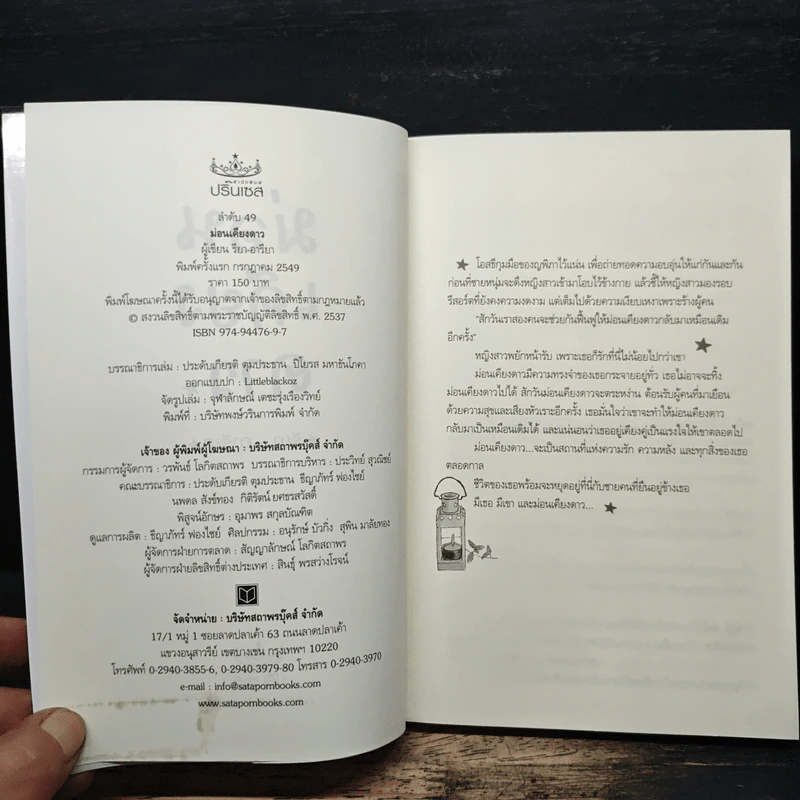 สำนักพิมพ์
ปริ๊นเซส
ลำดับ 49
ม่อนเคียงดาว
ผู้เขียน รียา-อารียา
พิมพ์ครั้งแรก กรกฎาคม 2549
ราคา 150 บาท
พิมพ์โฆษณาครั้งนี้ได้รับอนุญาตจากเจ้าของลิขสิทธิ์ตามกฎหมายแล้ว
© สงวนลิขสิทธิ์ตามพระราชบัญญัติลิขสิทธิ์ พ.ศ. 2537
ISBN 974-94476-9-7
บรรณาธิการเล่ม : ประดับเกียรติ ตุมประธาน ปิโยรส มหาขันโภคา
ออกแบบปก : Littleblackoz
จัดรูปเล่ม : จุฬาลักษณ์ เตชะรุ่งเรืองวิทย์
พิมพ์ที่ : บริษัทพงษ์วรินการพิมพ์ จำกัด
เจ้าของ ผู้พิมพ์ผู้โฆษณา : บริษัทสถาพรบุ๊คส์ จำกัด
กรรมการผู้จัดการ : วรพันธ์ โลกิตสถาพร บรรณาธิการบริหาร : ประวิทย์ สุวณิชย์
คณะบรรณาธิการ : ประดับเกียรติ ตุมประธาน ธีญาภัทร์ ฟองไชย์
นพดล สังข์ทอง กิติรัตน์ ยศธรสวัสดิ์
พิสูจน์อักษร : อุมาพร สกุลบัณฑิต
ดูแลการผลิต : ธีญาภัทร์ ฟองไชย์ ศิลปกรรม : อนุรักษ์ บัวกิ่ง สุพิน มาลัยทอง
ผู้จัดการฝ่ายการตลาด : สัญญาลักษณ์ โลกิตสถาพร
ผู้จัดการฝ่ายลิขสิทธิ์ต่างประเทศ : สินธุ์ พรสว่างโรจน์
จัดจำหน่าย : บริษัทสถาพรบุ๊คส์ จำกัด
17/1 หมู่ 1 ซอยลาดปลาเค้า 63 ถนนลาดปลาเค้า
แขวงอนุสาวรีย์ เขตบางเขน กรุงเทพฯ 10220
โทรศัพท์ 0-2940-3855-6, 0-2940-3979-80 โทรสาร 0-2940-3970
e-mail : info@satapornbooks.com
www.satapornbooks.com
โอสธีกุมมือของญพิภาไว้แน่น เพื่อถ่ายทอดความอบอุ่นให้แก่กันและกัน
ก่อนที่ชายหนุ่มจะดึงหญิงสาวเข้ามาโอบไว้ข้างกาย แล้วชี้ให้หญิงสาวมองรอบ
รีสอร์ตที่ยังคงความงดงาม แต่เต็มไปด้วยความเงียบเหงาเพราะร้างผู้คน
"สักวันเราสองคนจะช่วยกันฟื้นฟูให้ม่อนเคียงดาวกลับมาเหมือนเดิม
อีกครั้ง"
หญิงสาวพยักหน้ารับ เพราะเธอก็รักที่นี่ไม่น้อยไปกว่าเขา
ม่อนเคียงดาวมีความทรงจำของเธอกระจายอยู่ทั่ว เธอไม่อาจจะทิ้ง
ม่อนเคียงดาวไปได้ สักวันม่อนเคียงดาวจะตระหง่าน ต้อนรับผู้คนที่มาเยือน
ด้วยความสุขและเสียงหัวเราะอีกครั้ง เธอมั่นใจว่าเขาจะทำให้ม่อนเคียงดาว
กลับมาเป็นเหมือนเดิมได้ และแน่นอนว่าเธออยู่เคียงคู่เป็นแรงใจให้เขาตลอดไป
ม่อนเคียงดาว...จะเป็นสถานที่แห่งความรัก ความหลัง และทุกสิ่งของเธอ
ตลอดกาล
ชีวิตของเธอพร้อมจะหยุดอยู่ที่นี่กับชายคนที่ยืนอยู่ข้างเธอ
มีเธอ มีเขา และม่อนเคียงดาว...